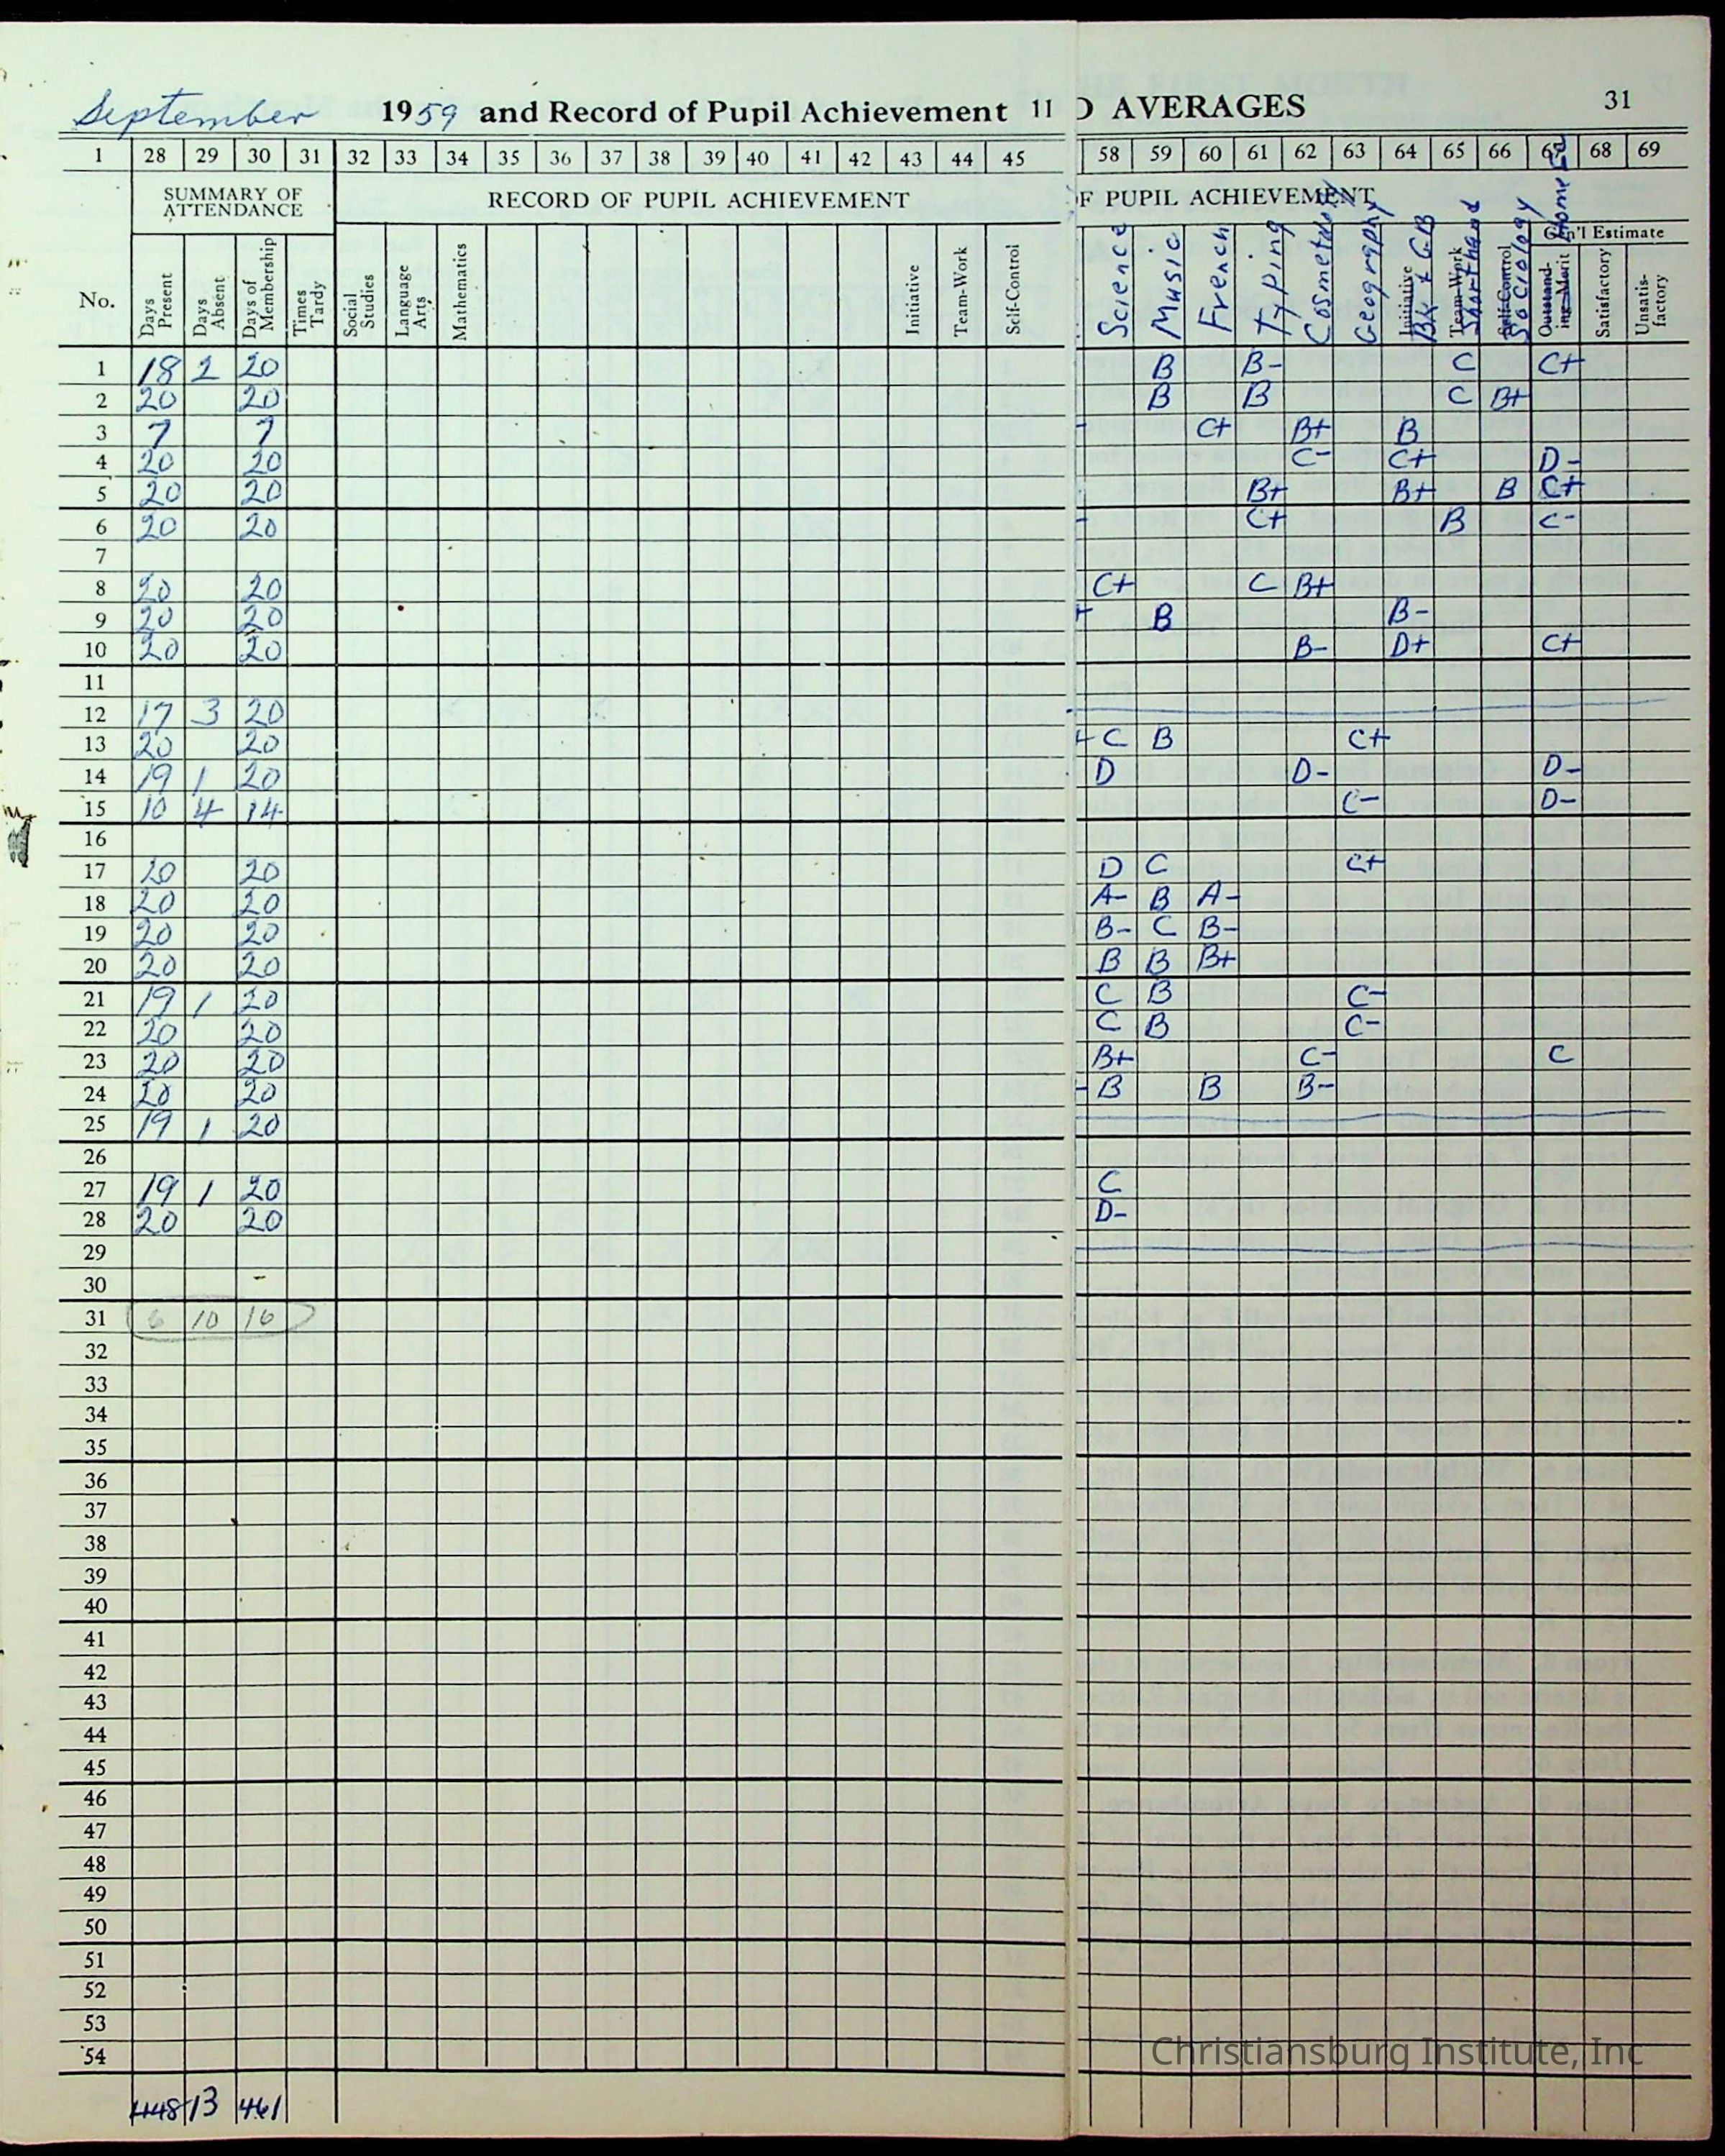 September 1959 and Record of Pupil Achievement 11
D AVERAGES 31
1 28 29 30 31 32 33 34 35 36 37 38 39 40 41 42 43 44 45
58 59 60 61 62 63 64 65 66 67 68 69
SUMMARY OF ATTENDANCE RECORD OF PUPIL ACHIEVEMENT
F PUPIL ACHIEVEMENT
Gen'l Estimate
No. Days Present Days Absent Days of Membership Times Tardy Social Studies Language Arts Mathematics Initiative Team-Work Self-Control
Science Music French Typing Cosmetology Geography Initiative BK & GB Team-Work Shorthand Self-Control Sociology Outstanding Merit Home Ec Satisfactory Unsatisfactory
1 18 2 20 B B- C C+
2 20 20 B B C B+
3 7 7 - C+ B+ B
4 20 20 C- C+ D-
5 20 20 B+ B+ B C+
6 20 20 - C+ B C-
7
8 20 20 C+ C B+
9 20 20 + B B-
10 20 20 B- D+ C+
11
12 17 3 20
13 20 20 + C B C+
14 19 1 20 D D- D-
15 10 4 14 C- D-
16
17 20 20 D C C+
18 20 20 A- B A-
19 20 20 B- C B-
20 20 20 B B B+
21 19 1 20 C B C-
22 20 20 C B C-
23 20 20 B+ C- C
24 20 20 - B B B-
25 19 1 20
26
27 19 1 20 C
28 20 20 D-
29
30
31 6 10 16
32
33
34
35
36
37
38
39
40
41
42
43
44
45
46
47
48
49
50
51
52
53
54
448 13 461
Christiansburg Institute, Inc